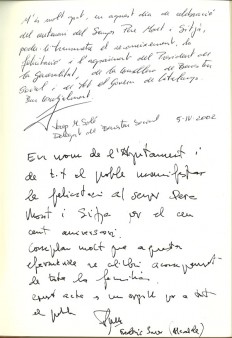 M'és molt grat, en aquest dia de celebració
del centenari del Senyor Pere Mont i Sitjà,
poder-li transmetre el reconeixement, la
felicitació i l'agraïment del President de
la Generalitat, de la Consellera de Benestar
Social i de tot el Govern de Catalunya.
Ben cordialment
Josep M. Solé
Delegat de Benestar Social
5-IV-2002
En nom de l'Ajuntament i
de tot el poble manifestar
la felicitació al senyor Pere
Mont i Sitja por el cen
cent aniversari.
molt que aquesta
efemèride se celebri acompanyat
de tota la família.
Aquest acte és un orgull per a tot
el poble
(Alcalde)